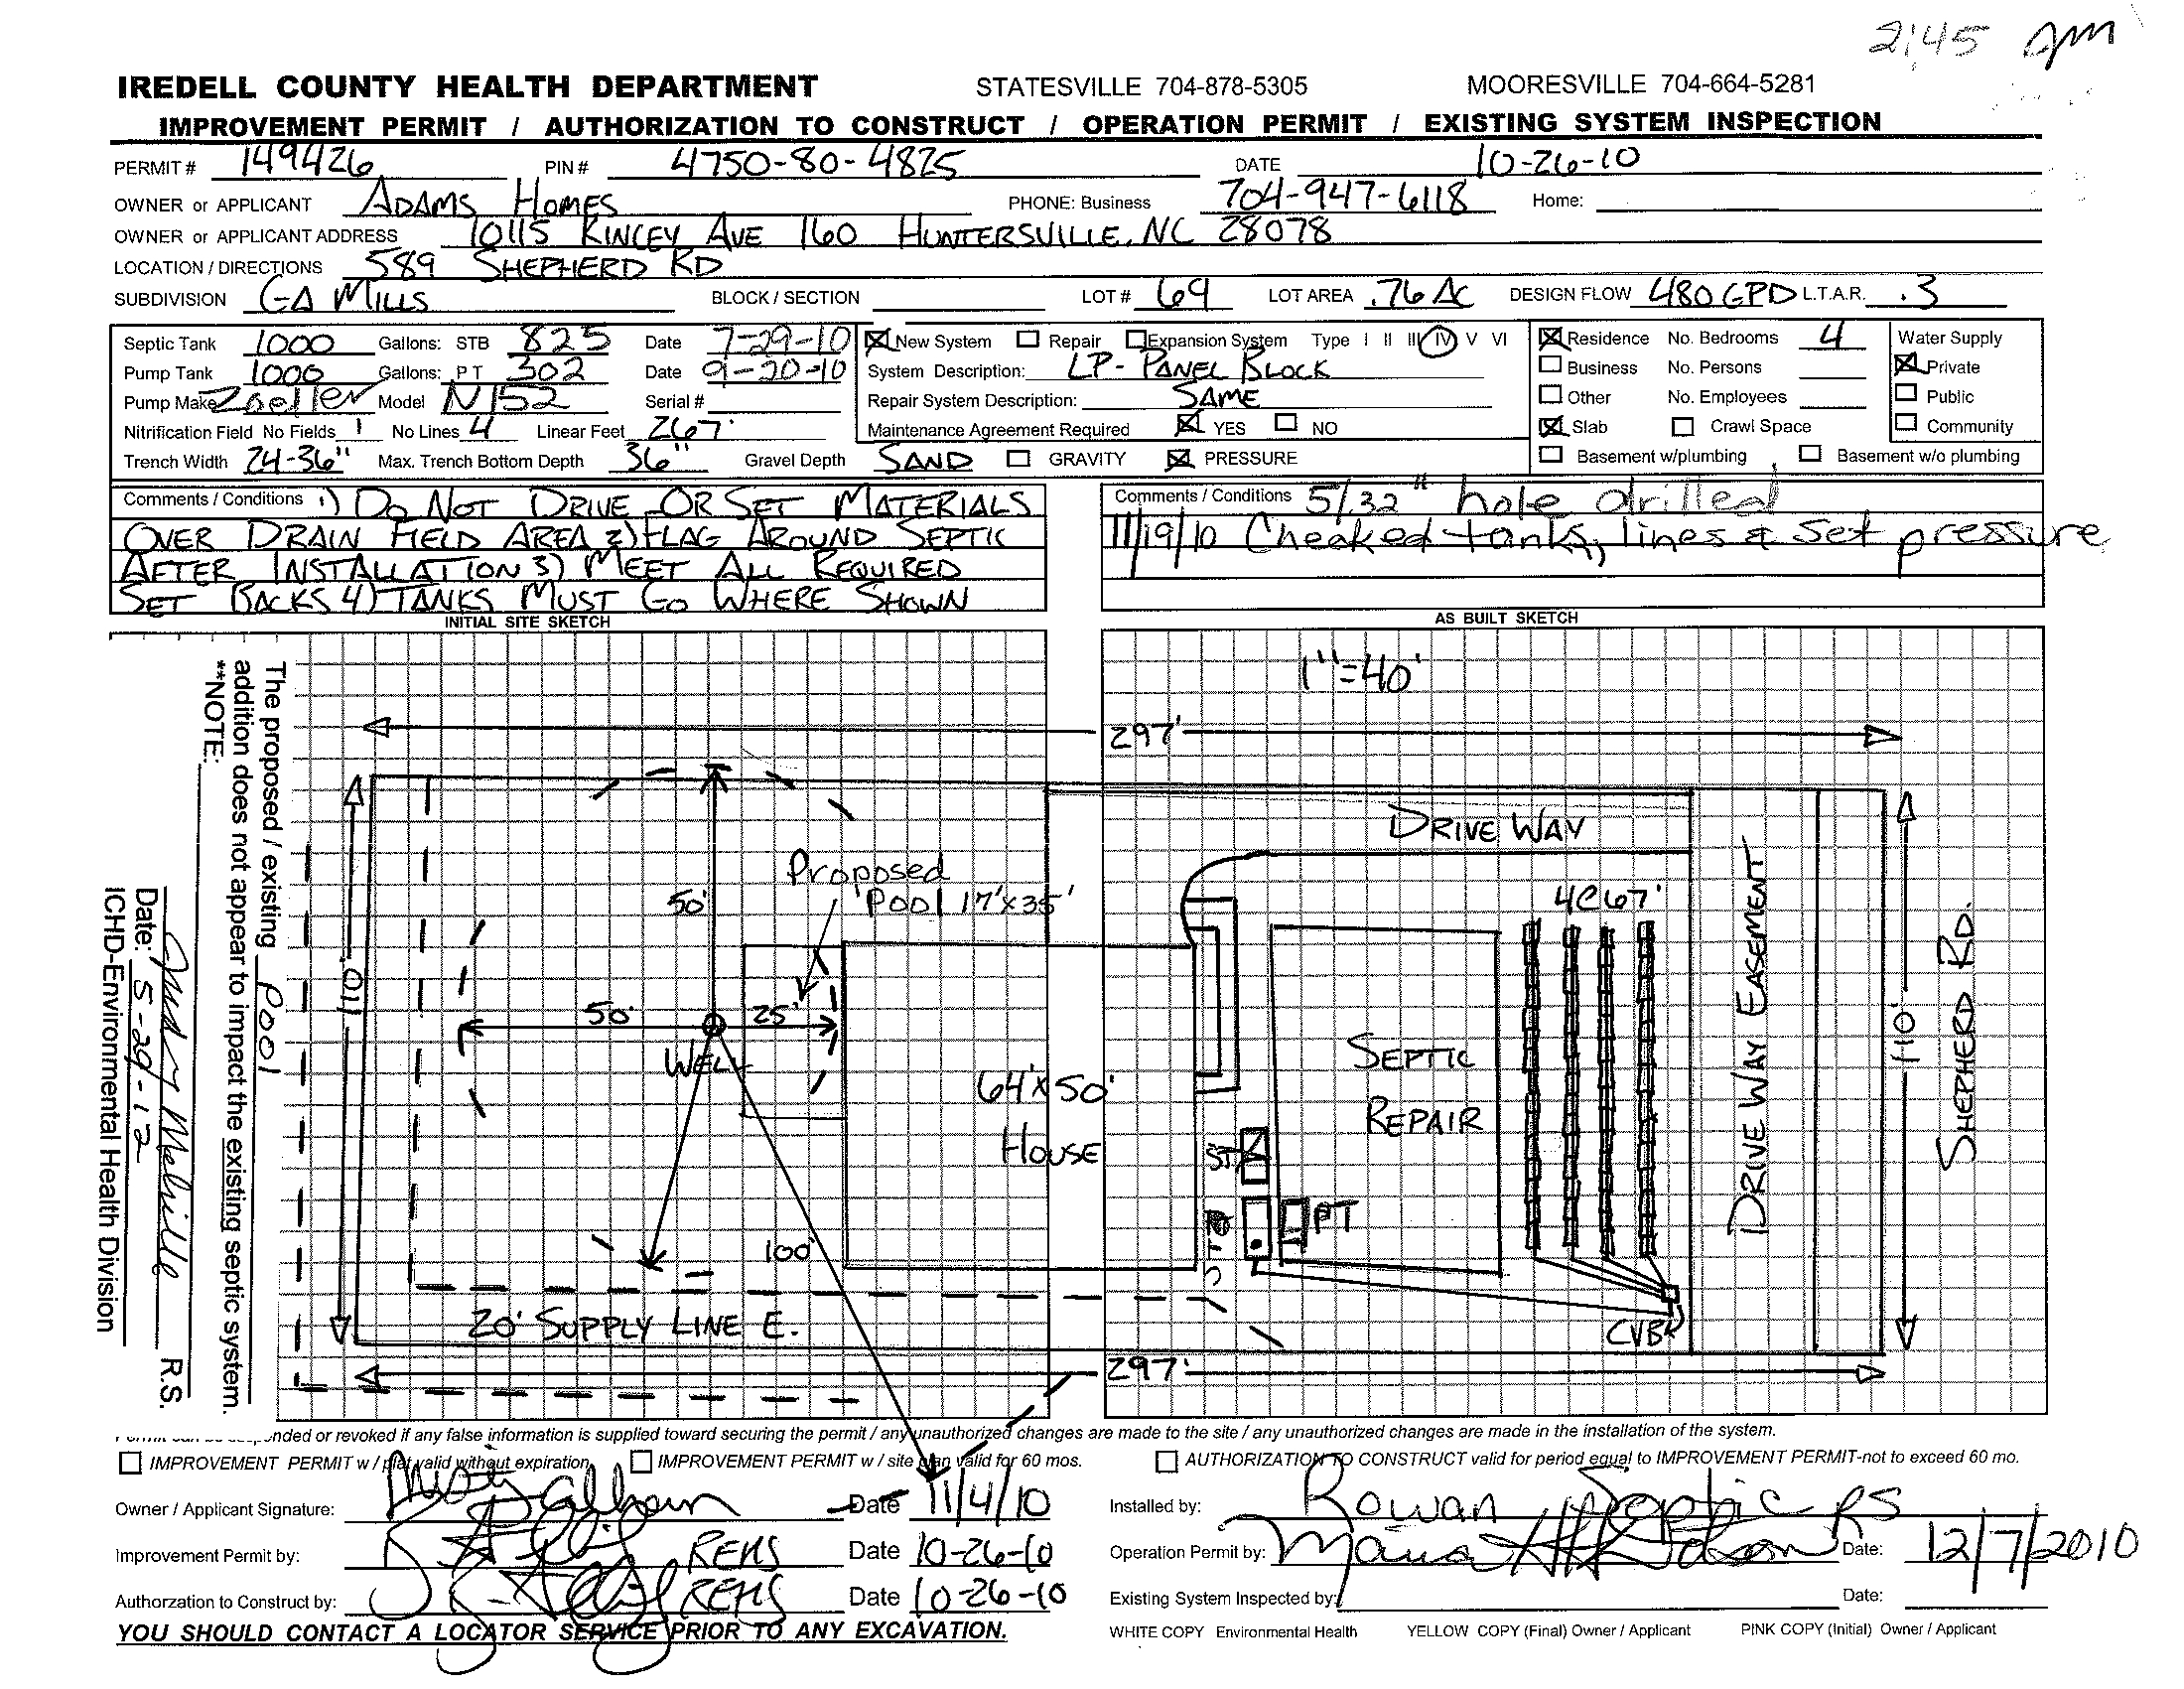 2:45 pm
IREDELL COUNTY HEALTH DEPARTMENT STATESVILLE 704-878-5305 MOORESVILLE 704-664-5281
IMPROVEMENT PERMIT / AUTHORIZATION TO CONSTRUCT / OPERATION PERMIT / EXISTING SYSTEM INSPECTION
PERMIT # 149426 PIN # 4750-80-4825 DATE 10-26-10
OWNER or APPLICANT ADAMS HOMES PHONE: Business 704-947-6118 Home:
OWNER or APPLICANT ADDRESS 10115 KINCEY AVE 160 HUNTERSVILLE, NC 28078
LOCATION / DIRECTIONS 589 SHEPHERD RD
SUBDIVISION GA MILLS BLOCK / SECTION LOT # 69 LOT AREA .76 AC DESIGN FLOW 480 GPD L.T.A.R. .3
Septic Tank 1000 Gallons: STB 825 Date 7-29-10 New System Repair Expansion System Type I II III IV V VI Residence No. Bedrooms 4 Water Supply
Pump Tank 1000 Gallons: PT 302 Date 9-20-10 System Description: LP-PANEL BLOCK Business No. Persons Private
Pump Make Zoeller Model N152 Serial # Repair System Description: SAME Other No. Employees Public
Nitrification Field No Fields 1 No Lines 4 Linear Feet 267' Maintenance Agreement Required YES NO Slab Crawl Space Community
Trench Width 24-36" Max. Trench Bottom Depth 36" Gravel Depth SAND GRAVITY PRESSURE Basement w/plumbing Basement w/o plumbing
Comments / Conditions 1) DO NOT DRIVE OR SET MATERIALS
OVER DRAIN FIELD AREA 2) FLAG AROUND SEPTIC
AFTER INSTALLATION 3) MEET ALL REQUIRED
SET BACKS 4) TANKS MUST GO WHERE SHOWN
Comments / Conditions 5/32" hole drilled
11/19/10 Checked tanks, lines & set pressure
INITIAL SITE SKETCH AS BUILT SKETCH
1"=40'
297'
DRIVE WAY
Proposed
Pool 17'x35'
50'
4@67'
110'
50' 25'
WELL
64'x50'
HOUSE
SEPTIC
REPAIR
ST
PT
100'
20' SUPPLY LINE E.
CVB
297'
DRIVE WAY EASEMENT
110'
SHEPHERD RD.
**NOTE:
The proposed / existing Pool
addition does not appear to impact the existing septic system.
R.S.
Date: 5-29-12
ICHD-Environmental Health Division
nded or revoked if any false information is supplied toward securing the permit / any unauthorized changes are made to the site / any unauthorized changes are made in the installation of the system.
IMPROVEMENT PERMIT w / plat valid without expiration IMPROVEMENT PERMIT w / site plan valid for 60 mos. AUTHORIZATION TO CONSTRUCT valid for period equal to IMPROVEMENT PERMIT-not to exceed 60 mo.
Owner / Applicant Signature: Date 11/4/10 Installed by: Rowan Septic RS
Improvement Permit by: REHS Date 10-26-10 Operation Permit by: Date: 12/7/2010
Authorzation to Construct by: REHS Date 10-26-10 Existing System Inspected by: Date:
YOU SHOULD CONTACT A LOCATOR SERVICE PRIOR TO ANY EXCAVATION. WHITE COPY Environmental Health YELLOW COPY (Final) Owner / Applicant PINK COPY (Initial) Owner / Applicant